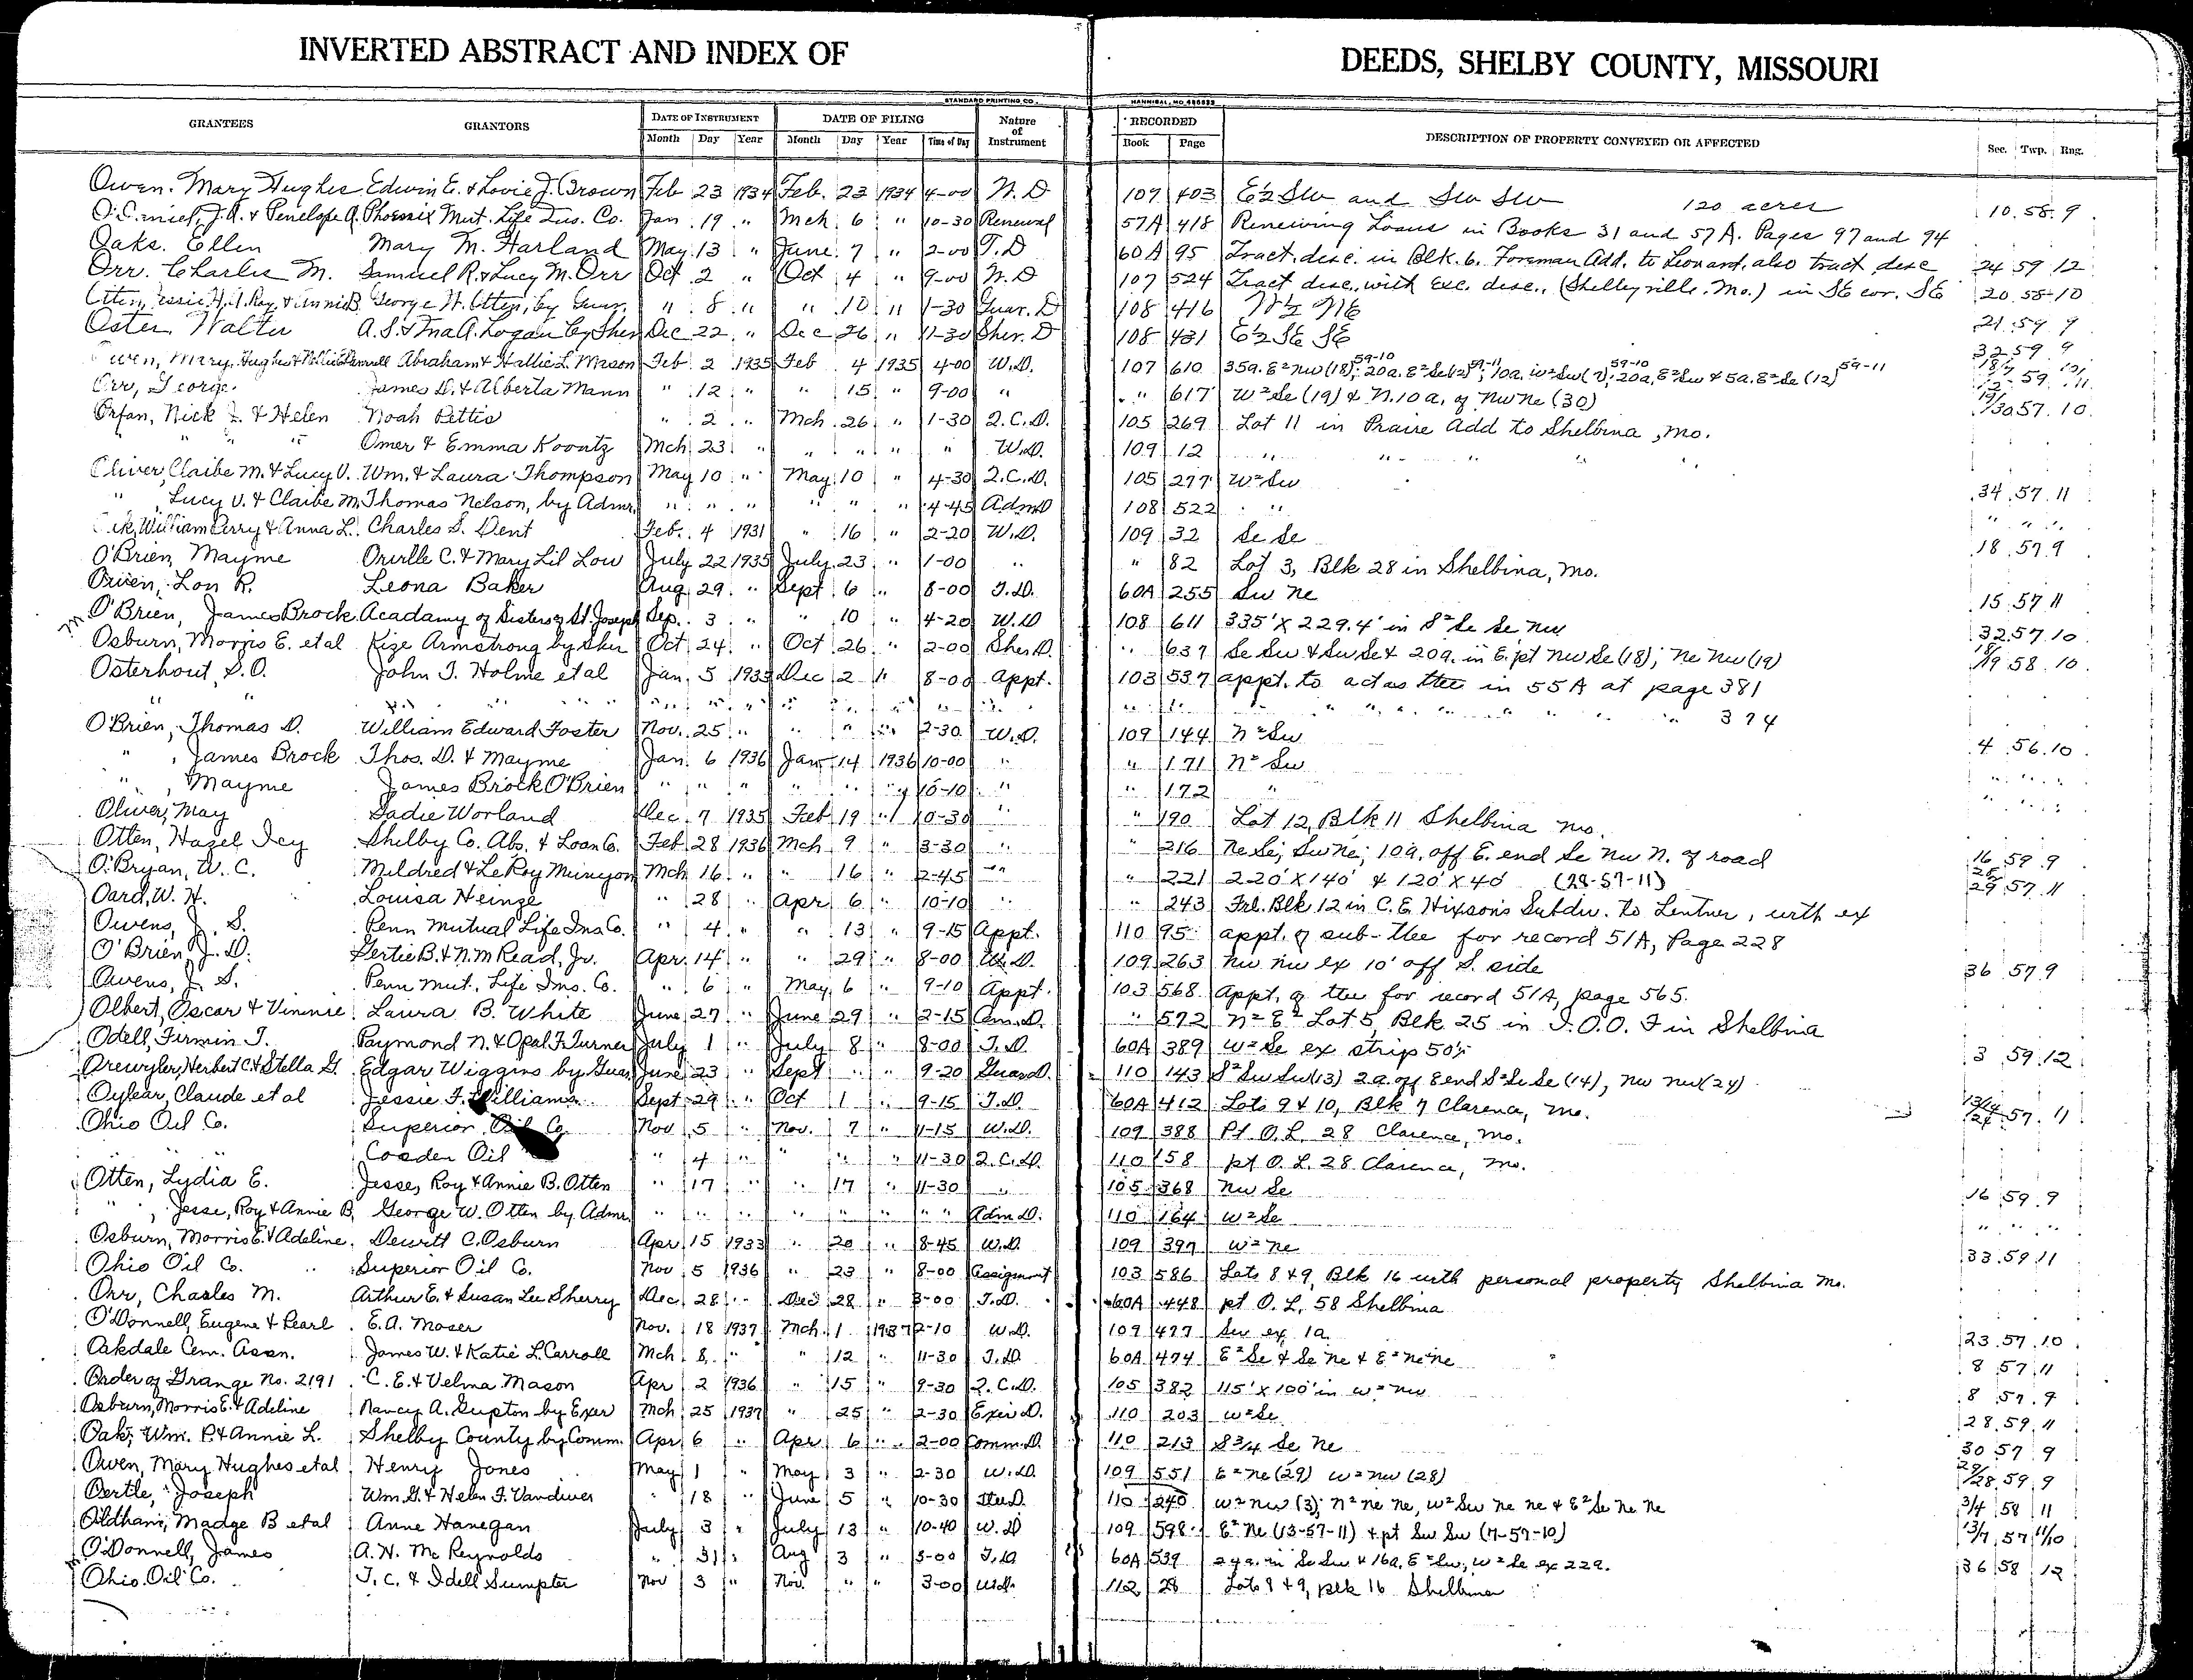 INVERTED ABSTRACT AND INDEX OF DEEDS, SHELBY COUNTY, MISSOURI
STANDARD PRINTING CO. HANNIBAL, MO.
GRANTEES GRANTORS DATE OF INSTRUMENT DATE OF FILING Nature of Instrument RECORDED DESCRIPTION OF PROPERTY CONVEYED OR AFFECTED Sec. Twp. Rng.
Month Day Year Month Day Year Time of Day Book Page
Owen, Mary Hughes Edwin E. & Lovie J. Brown Feb 23 1934 Feb. 23 1934 4-00 W. D 107 403 E½ Sw and Sw Sw 120 acres 10. 58. 9
J.A. & Penelope A. Phoenix Mut. Life Ins. Co. Jan 19 " Mch 6 " 10-30 Renewal 57A 418 Renewing Loans in Books 31 and 57A. Pages 97 and 94
Oaks. Ellen Mary M. Harland May 13 " June 7 " 2-00 T.D 60A 95 Tract. desc. in Blk. 6. Foreman Add. to Leonard, also tract desc 24 59 12
Orr. Charles M. Samuel R. & Lucy M. Orr Oct 2 " Oct 4 " 9-00 W. D 107 524 Tract desc. with exc. desc., (Shelbyville. Mo.) in SE cor. SE 20 58-10
Otten, Jessie H., A. Ray & Annie B George W. Otten, by Guar. " 8 " " 10 " 1-30 Guar. D 108 416 W½ NE 21 59 9
Oster Walter A. S. & Ina A. Logan by Sher Dec 22 " Dec 26 " 11-30 Sher. D 108 431 E½ SE SE 32 59 9
Owen, Mary Hughes & Abraham & Hallie L. Mason Feb 2 1935 Feb 4 1935 4-00 W.D. 107 610 35a. E² nw (18); 20a. E² Se (12) 59-11; 10a. w² Sw (7) 59-10; 20a, E² Sw & 5a. E² Se (12) 59-11
Orr, George James D. & Alberta Mann " 12 " " 15 " 9-00 " " 617 W² Se (19) & N. 10 a. of Nw Ne (30) 19/30 57. 10.
Orfan, Nick J. & Helen Noah Pettis " 2 " Mch 26 " 1-30 Q.C.D. 105 269 Lot 11 in Praire Add to Shelbina, Mo.
" " " Omer & Emma Koontz Mch 23 " " " " " W.D. 109 12 " " " "
Oliver, Claibe M. & Lucy V. Wm. & Laura Thompson May 10 " May 10 " 4-30 Q.C.D. 105 277 W² Sw 34. 57. 11
" Lucy V. & Claibe M. Thomas Nelson, by Admr. " " " " " " 4-45 AdmD 108 522 " " " "
William Perry & Anna L. Charles S. Dent Feb. 4 1931 " 16 " 2-20 W.D. 109 32 Se Se 18. 57. 9
O'Brien, Mayme Orville C. & Mary Lil Low July 22 1935 July 23 " 1-00 " " 82 Lot 3, Blk 28 in Shelbina, Mo.
Owen, Lon R. Leona Baker Aug 29 " Sept 6 " 8-00 T.D. 60A 255 Sw Ne 15. 57 11
M O'Brien, James Brock Acadamy of Sisters of St. Joseph Sep. 3 " " 10 " 4-20 W.D 108 611 335' X 229.4' in S² Se Se Nw 32 57. 10
Osburn, Morris E. etal Kize Armstrong by Sher Oct 24 " Oct 26 " 2-00 Sher D. " 637 Se Sw & Sw Se & 20a. in E. pt Nw Se (18); Ne Nw (19) 18/19 58. 10.
Osterhout, S.O. John T. Holme etal Jan. 5 1935 Dec 2 " 8-00 Appt. 103 537 appt. to act as ttee in 55A at page 381
" " " " " " " " " " " " " " " " " " 374
O'Brien, Thomas D. William Edward Foster Nov. 25 " " " " 2-30 W.D. 109 144 N² Sw 4. 56. 10
" , James Brock Thos. D. & Mayme Jan. 6 1936 Jan 14 1936 10-00 " " 171 N² Sw " " "
" , Mayme James Brock O'Brien " " " " " " 10-10 " " 172 " " " "
Oliver, May Sadie Worland Dec. 7 1935 Feb 19 " 10-30 " " 190 Lot 12, Blk 11 Shelbina Mo.
Otten, Hazel Icy Shelby Co. Abs. & Loan Co. Feb 28 1936 Mch 9 " 3-30 " " 216 Ne Se; Sw Ne; 10a. off E. end Se Nw N. of road 16 59. 9
O'Bryan, W. C. Mildred & LeRoy Munyon Mch 16 " " 16 " 2-45 " " 221 220' X 140' & 120' X 40' (28-57-11) 29 57. 11
Oard, W. H. Louisa Heinze " 28 " Apr 6 " 10-10 " " 243 Frl. Blk 12 in C. E. Hixson's Subdiv. to Lentner, with ex
Owens, J. S. Penn Mutual Life Ins Co. " 4 " " 13 " 9-15 Appt. 110 95 appt. of sub-ttee for record 51A, Page 228
O'Brien, J. D. Gertie B. & N.M Read, Jr. Apr. 14 " " 29 " 8-00 W.D. 109 263 Nw Nw ex 10' off S. side 36 57. 9
Owens, J. S. Penn Mut. Life Ins. Co. " 6 " May 6 " 9-10 Appt. 103 568 Appt. of ttee for record 51A, page 565.
Olbert, Oscar & Vinnie Laura B. White June 27 " June 29 " 2-15 Cem.D. " 572 N² E² Lot 5, Blk 25 in I.O.O.F in Shelbina
Odell, Firmin T. Raymond N. & Opal F. Turner July 1 " July 8 " 8-00 T.D. 60A 389 W² Se ex strip 50' 3 59. 12
Orewyler, Herbert C. & Stella G. Edgar Wiggins by Guar June 23 " Sept " " 9-20 GuarD. 110 143 S² Sw Sw (13) 2a. off E end S² Se Se (14), Nw Nw (24) 13/14/24 57. 11
Oylear, Claude et al Jessie F. Williams Sept 29 " Oct 1 " 9-15 T.D. 60A 412 Lots 9 & 10, Blk 7 Clarence, Mo.
Ohio Oil Co. Superior Oil Co Nov 5 " Nov. 7 " 11-15 W.D. 109 388 Pt O.L. 28 Clarence, Mo.
" " Cosden Oil " 4 " " " " 11-30 Q.C.D. 110 158 pt O.L. 28 Clarence, Mo.
Otten, Lydia E. Jesse, Roy & Annie B. Otten " 17 " " 17 " 11-30 " 105 368 Nw Se 16 59. 9
" , Jesse, Roy & Annie B. George W. Otten by Admr. " " " " " " " Adm D. 110 164 W² Se " " "
Osburn, Morris E. & Adeline Dewitt C. Osburn Apr 15 1933 " 20 " 8-45 W.D. 109 397 W² Ne 33. 59. 11
Ohio Oil Co. Superior Oil Co. Nov 5 1936 " 23 " 8-00 Assignment 103 586 Lots 8 & 9, Blk 16 with personal property Shelbina Mo.
Orr, Charles M. Arthur E. & Susan Lee Sherry Dec 28 " Dec 28 " 3-00 T.D. 60A 448 pt O.L. 58 Shelbina
O'Donnell, Eugene & Pearl E.A. Moser Nov. 18 1937 Mch. 1 1937 2-10 W.D. 109 477 Sw ex 1a 23. 57. 10
Oakdale Cem. Assn. James W. & Katie L. Carroll Mch 8 " " 12 " 11-30 T.D. 60A 474 E² Se & Se Ne & E² Ne Ne 8 57. 11
Order of Grange No. 2191 C.E. & Velma Mason Apr 2 1936 " 15 " 9-30 Q.C.D. 105 382 115' X 100' in W² Nw 8 57. 9
Osburn, Morris E. & Adeline Nancy A. Gupton by Exer Mch 25 1937 " 25 " 2-30 Exer D. 110 203 W² Se 28. 59. 11
Oak, Wm. P. & Annie L. Shelby County by Comm. Apr 6 " Apr 6 " 2-00 Comm.D. 110 213 S¾ Se Ne 30 57 9
Owen, Mary Hughes etal Henry Jones May 1 " May 3 " 2-30 W.D. 109 551 E² Ne (29) W² Nw (28) 29/28. 59. 9
Oertle, Joseph Wm. G. & Helen F. Vandiver " 18 " June 5 " 10-30 Ttee D. 110 240 W² Nw (3); N² Ne Ne, W² Sw Ne Ne & E² Se Ne Ne 3/4 58 11
Oldham, Madge B etal Anne Hanegan July 3 " July 13 " 10-40 W.D 109 598 E² Ne (13-57-11) & pt Sw Sw (7-57-10) 13/7 57 11/10
O'Donnell, James A.H. McReynolds " 31 " Aug 3 " 3-00 T.D 60A 539 24a. in Se Sw & 16a. E² Sw; W² Se ex 22a. 36 58 12
Ohio Oil Co. T.C. & Idell Sumpter Nov 3 " Nov. " " 3-00 W.D. 112 28 Lots 8 & 9, Blk 16 Shelbina